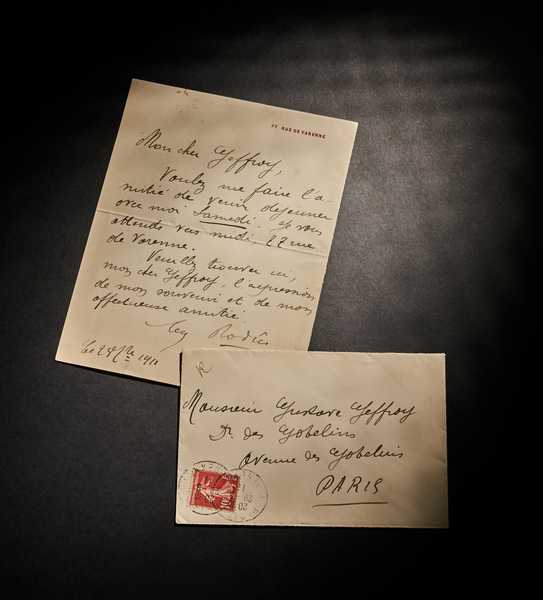 77 RUE DE VARENNE
Mon cher Geffroy,
Voulez me faire l'a-
mitié de venir déjeuner
avec moi Samedi. Je vous
attends vers midi 77 rue
de Varenne.
Veuillez trouver ici,
mon cher Geffroy, l'expression
de mon souvenir et de mon
affectueuse amitié
Aug Rodin
Le 1911
Monsieur Gustave Geffroy
Dr. des Gobelins
Avenue des Gobelins
PARIS
10